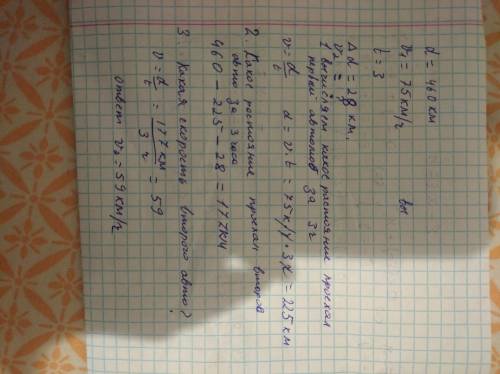 d = 460 км
v₁ = 75 км/ч вы
t = 3
Δ d = 28 км.
v₂ =
1 вычисляем какое растояние проехал
первый автомоб за 3ч
v = d/t d = v · t = 75 к/ч · 3ч = 225 км
2. Какое растояние проехал второв
авто за 3 часа
460 - 225 - 28 = 177км
3. Какая скорость второго авто?
v = d/t = 177 км / 3 ч = 59
ответ v₂ = 59 км/ч